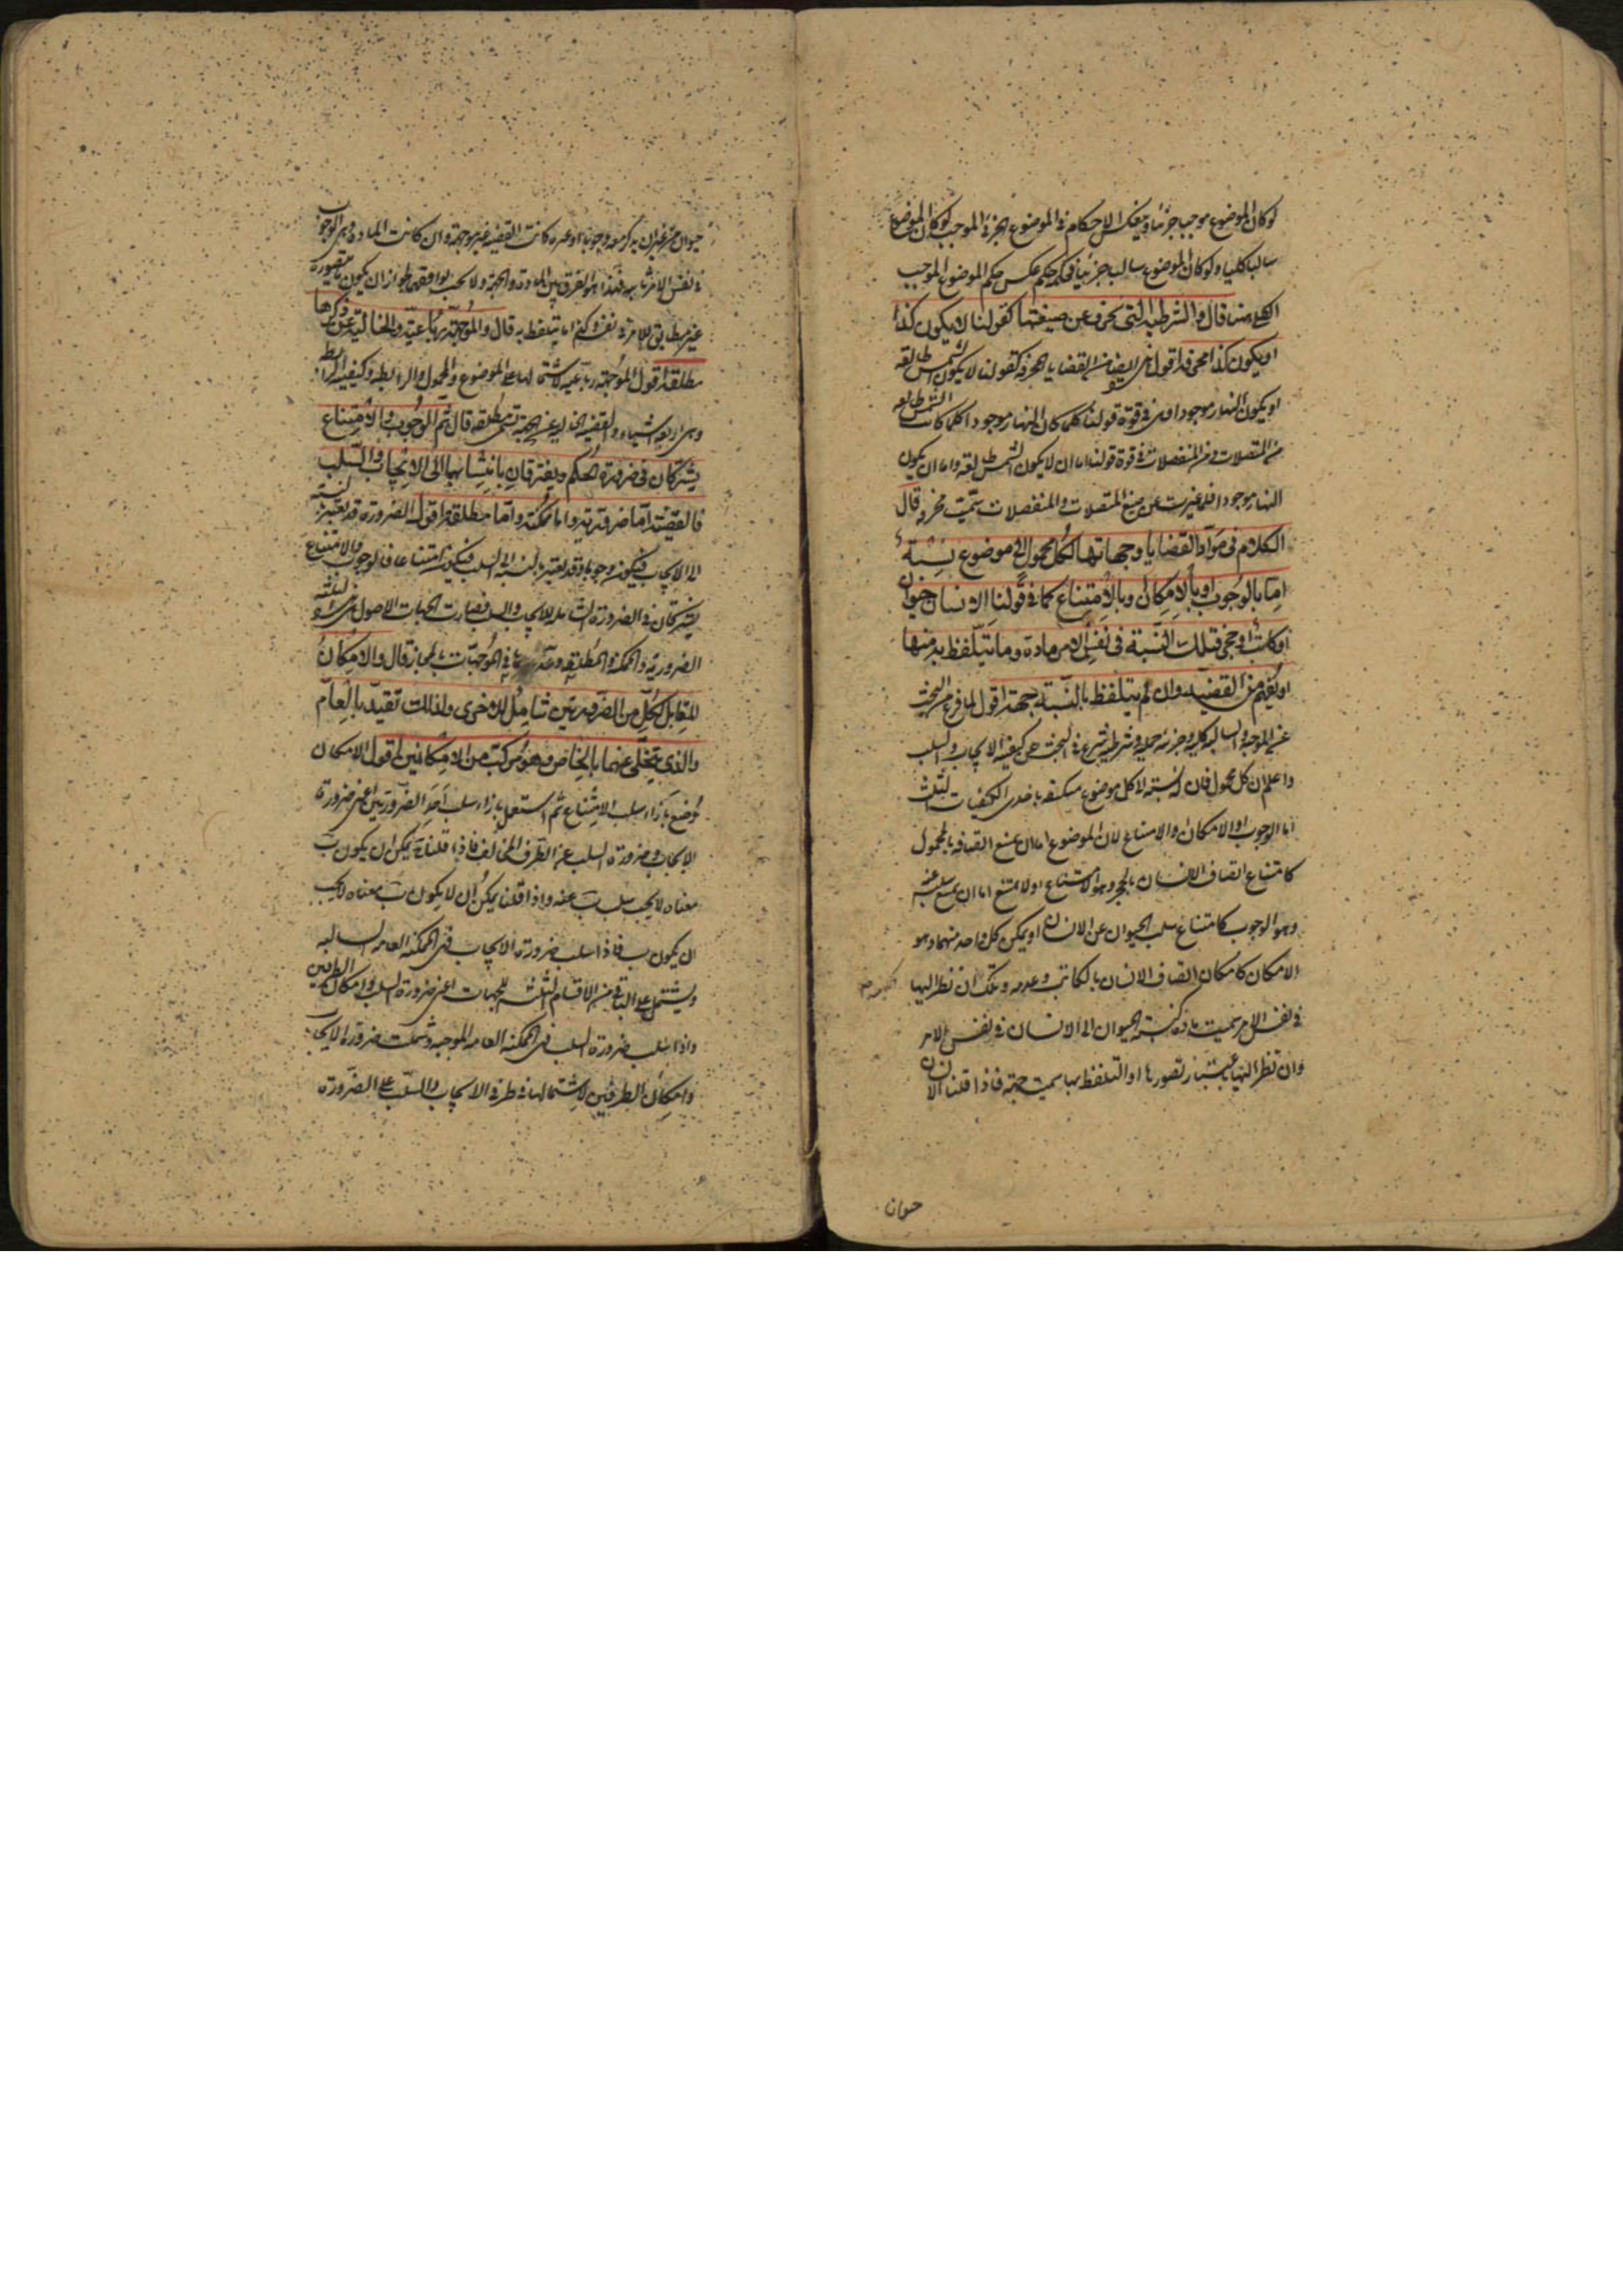 لو كان الموضوع موجبا جزئيا وينعكس الاحكام في الموضوع الجزئي الموجب لو كان الموضوع
سالبا كليا ولو كان الموضوع سالبا جزئيا فحكمه حكم عكس حكم الموضوع الموجب
الكلي قال والشرطية التي تحرف عن صيغتها كقولنا لا يكون كذا
او يكون كذا اقول من القضايا المحرفة كقولنا لا يكون الشمس طالعة
او يكون النهار موجودا وهي في قوة قولنا كلما كان النهار موجودا كلما كانت الشمس طالعة
من المتصلات ومن المنفصلات في قوة قولنا اما ان لا يكون الشمس طالعة واما ان يكون
النهار موجودا فلما غيرت عن صيغ المتصلات والمنفصلات سميت محرفة قال
الكلام في مواد القضايا وجهاتها لكل محمول الى موضوع نسبة
اما بالوجوب او بالامكان وبالامتناع كما في قولنا الانسان حيوان
او كاتب او حجر فتلك النسبة في نفس الامر مادة وما يتلفظ به منها
او يفهم من القضية وان لم يتلفظ بالنسبة جهة اقول لما فرغ من البحث
عن الموجبة والسالبة كلية وجزئية حملية وشرطية شرع في البحث عن كيفية الايجاب والسلب
واعلم ان كل محمول فان له نسبة الى كل موضوع مكيفة باحدى الكيفيات الثلث
اما الوجوب او الامكان والامتناع لان الموضوع اما ان يمتنع اتصافه بالمحمول
كامتناع اتصاف الانسان بالحجر وهو الامتناع او لا يمتنع اما ان يمتنع سلبه عنه
وهو الوجوب كامتناع سلب الحيوان عن الانسان او يمكن كل واحد منهما وهو
الامكان كامكان اتصاف الانسان بالكاتب وعدمه وتلك ان نظر اليها
في نفس الامر سميت مادة كنسبة الحيوان الى الانسان في نفس الامر
وان نظر اليها باعتبار تصورها او التلفظ بها سميت جهة فاذا قلنا الانسان
حيوان
حيوان من غير ان يذكر معه وجوبا او غيره كانت القضية غير موجهة وان كانت المادة وهي الوجوب
في نفس الامر ثابتة فهذا هو الفرق بين المادة والجهة ولا يجب توافقهما لجواز ان يكون ما تتصوره
غير مطابق للامر في نفسه وكذا ما يتلفظ به قال والموجهة رباعية والخالية عن ذكرها
مطلقة اقول الموجهة رباعية لاشتمالها على الموضوع والمحمول والرابطة وكيفية الرابطة
وهي اربعة اشياء والقضية الخالية عن الجهة تسمى مطلقة قال ثم الوجوب والامتناع
يشتركان في ضرورة الحكم ويفترقان بانتسابها الى الايجاب والسلب
فالقضية اما ضرورية واما ممكنة واما مطلقة اقول الضرورة قد تعتبر بالنسبة
الى الايجاب فيكون وجوبا وقد تعتبر بالنسبة الى السلب فيكون امتناعا فالوجوب والامتناع
يشتركان في الضرورة الشاملة للايجاب والسلب فصارت الجهات الاصول ثلثة
الضرورية والممكنة والمطلقة في الموجهات بالمجاز قال والامكان
المقابل لكل من الضرورتين شامل للاخرى ولذلك تقيد بالعام
والذي يتخلى عنهما بالخاص وهو مركب من الامكانين اقول الامكان
وضع بازاء سلب الامتناع ثم استعمل بازاء سلب احد الضرورتين اعني ضرورة
الايجاب وضرورة السلب عن الطرف المخالف فاذا قلنا يمكن ان يكون ب
معناه لا يجب سلب ب عنه واذا قلنا يمكن ان لا يكون ب معناه لا يجب
ان يكون ب فاذا سلب ضرورة الايجاب فهي الممكنة العامة السالبة
ويشتمل على الباقي من الاقسام الثلثة للجهات اعني ضرورة السلب وامكان الطرفين
واذا سلب ضرورة السلب فهي الممكنة العامة الموجبة وشملت ضرورة الايجاب
وامكان الطرفين لاشتمالها في طرفي الايجاب والسلب على الضرورة